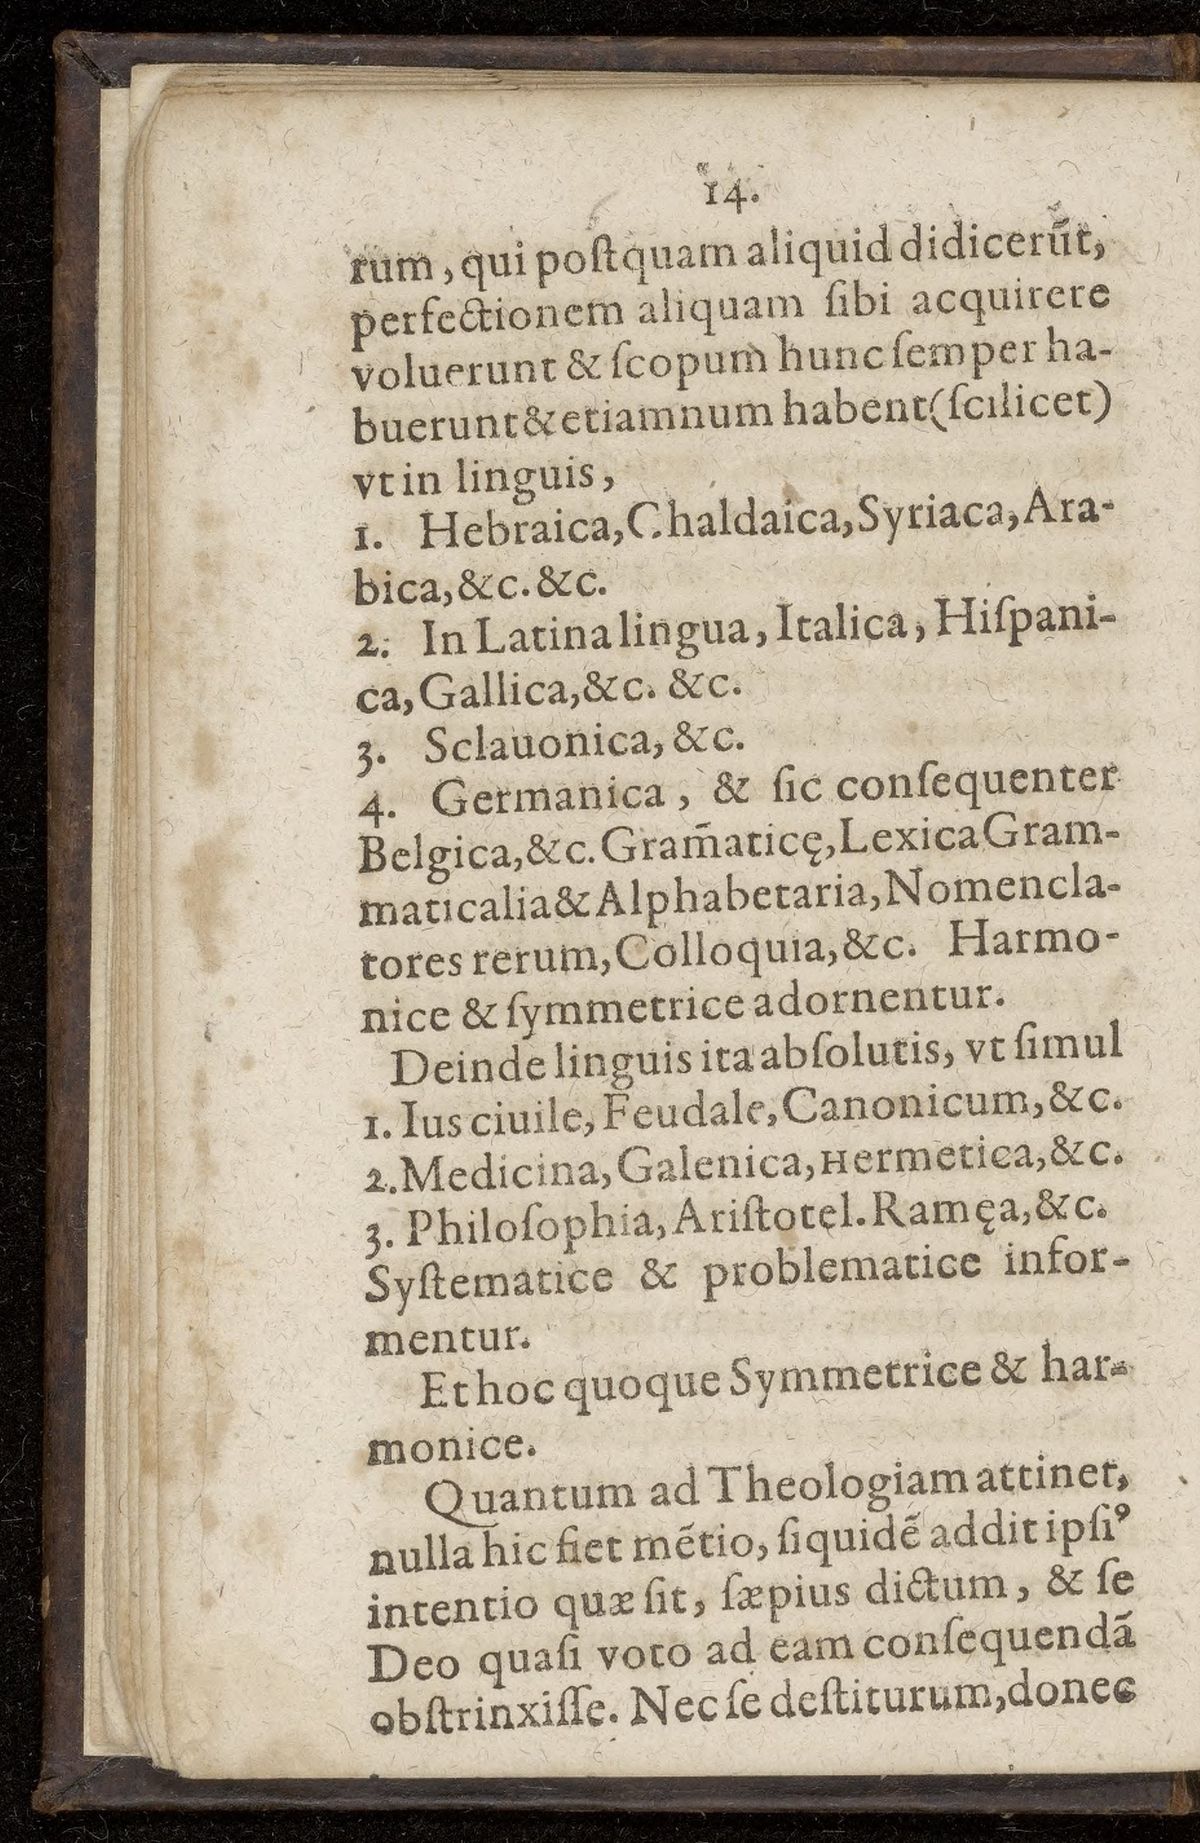 14.
rum, qui poſtquam aliquid didicerūt,
perfectionem aliquam ſibi acquirere
voluerunt & ſcopum hunc ſemper ha-
buerunt & etiamnum habent (ſcilicet)
vt in linguis,
1. Hebraica, Chaldaica, Syriaca, Ara-
bica, &c. &c.
2. In Latina lingua, Italica, Hiſpani-
ca, Gallica, &c. &c.
3. Sclauonica, &c.
4. Germanica, & ſic conſequenter
Belgica, &c. Gram̄aticę, Lexica Gram-
maticalia & Alphabetaria, Nomencla-
tores rerum, Colloquia, &c. Harmo-
nice & ſymmetrice adornentur.
Deinde linguis ita abſolutis, vt ſimul
1. Ius ciuile, Feudale, Canonicum, &c.
2. Medicina, Galenica, Hermetica, &c.
3. Philoſophia, Ariſtotel. Ramęa, &c.
Syſtematice & problematice infor-
mentur.
Et hoc quoque Symmetrice & har-
monice.
Quantum ad Theologiam attinet,
nulla hic fiet mētio, ſiquidē addit ipſiꝰ
intentio quæ ſit, ſæpius dictum, & ſe
Deo quaſi voto ad eam conſequendā
obſtrinxiſſe. Nec ſe deſtiturum, donec